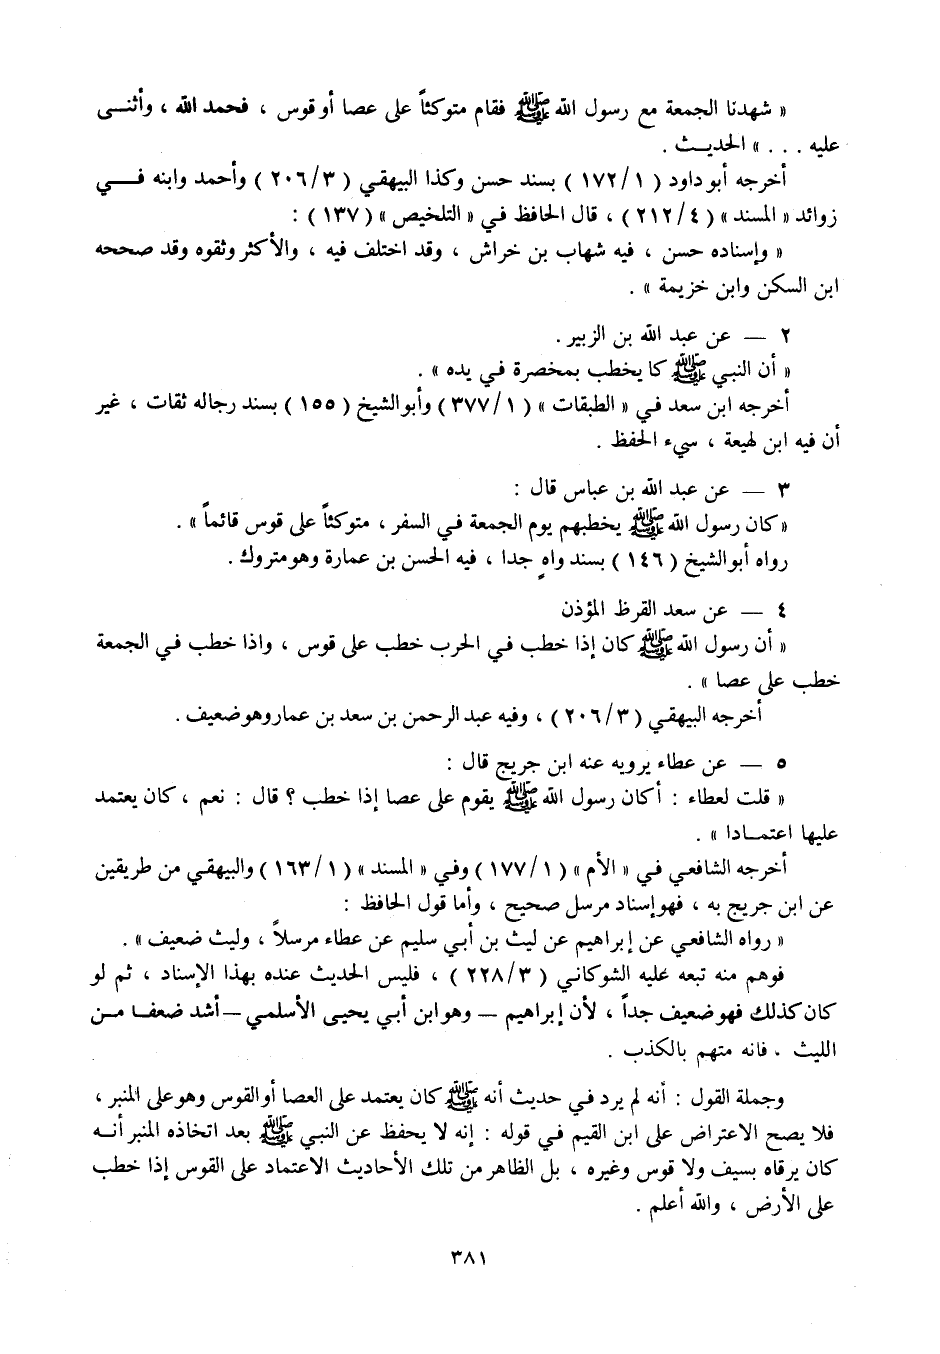 « شهدنا الجمعة مع رسول الله ﷺ فقام متوكئاً على عصا أو قوس ، فحمد الله ، وأثنى
عليه . . . » الحديث .
أخرجه أبو داود ( ١/ ١٧٢ ) بسند حسن وكذا البيهقي ( ٣/ ٢٠٦ ) وأحمد وابنه في
زوائد « المسند » ( ٤/ ٢١٢ ) ، قال الحافظ في « التلخيص » ( ١٣٧ ) :
« وإسناده حسن ، فيه شهاب بن خراش ، وقد اختلف فيه ، والأكثر وثقوه وقد صححه
ابن السكن وابن خزيمة » .
٢ — عن عبد الله بن الزبير .
« أن النبي ﷺ كا يخطب بمخصرة في يده » .
أخرجه ابن سعد في « الطبقات » ( ١/ ٣٧٧ ) وأبو الشيخ ( ١٥٥ ) بسند رجاله ثقات ، غير
أن فيه ابن لهيعة ، سيء الحفظ .
٣ — عن عبد الله بن عباس قال :
« كان رسول الله ﷺ يخطبهم يوم الجمعة في السفر ، متوكئاً على قوس قائماً » .
رواه أبو الشيخ ( ١٤٦ ) بسند واهٍ جدا ، فيه الحسن بن عمارة وهو متروك .
٤ — عن سعد القرظ المؤذن
« أن رسول الله ﷺ كان إذا خطب في الحرب خطب على قوس ، واذا خطب في الجمعة
خطب على عصا » .
أخرجه البيهقي ( ٣/ ٢٠٦ ) ، وفيه عبد الرحمن بن سعد بن عمار وهو ضعيف .
٥ — عن عطاء يرويه عنه ابن جريج قال :
« قلت لعطاء : أكان رسول الله ﷺ يقوم على عصا إذا خطب ؟ قال : نعم ، كان يعتمد
عليها اعتمادا » .
أخرجه الشافعي في « الأم » ( ١/ ١٧٧ ) وفي « المسند » ( ١/ ١٦٣ ) والبيهقي من طريقين
عن ابن جريج به ، فهو إسناد مرسل صحيح ، وأما قول الحافظ :
« رواه الشافعي عن إبراهيم عن ليث بن أبي سليم عن عطاء مرسلاً ، وليث ضعيف » .
فوهم منه تبعه عليه الشوكاني ( ٣/ ٢٢٨ ) ، فليس الحديث عنده بهذا الإسناد ، ثم لو
كان كذلك فهو ضعيف جداً ، لأن إبراهيم — وهو ابن أبي يحيى الأسلمي — أشد ضعفا من
الليث ، فانه متهم بالكذب .
وجملة القول : أنه لم يرد في حديث أنه ﷺ كان يعتمد على العصا أو القوس وهو على المنبر ،
فلا يصح الاعتراض على ابن القيم في قوله : إنه لا يحفظ عن النبي ﷺ بعد اتخاذه المنبر أنه
كان يرقاه بسيف ولا قوس وغيره ، بل الظاهر من تلك الأحاديث الاعتماد على القوس إذا خطب
على الأرض ، والله أعلم .
٣٨١